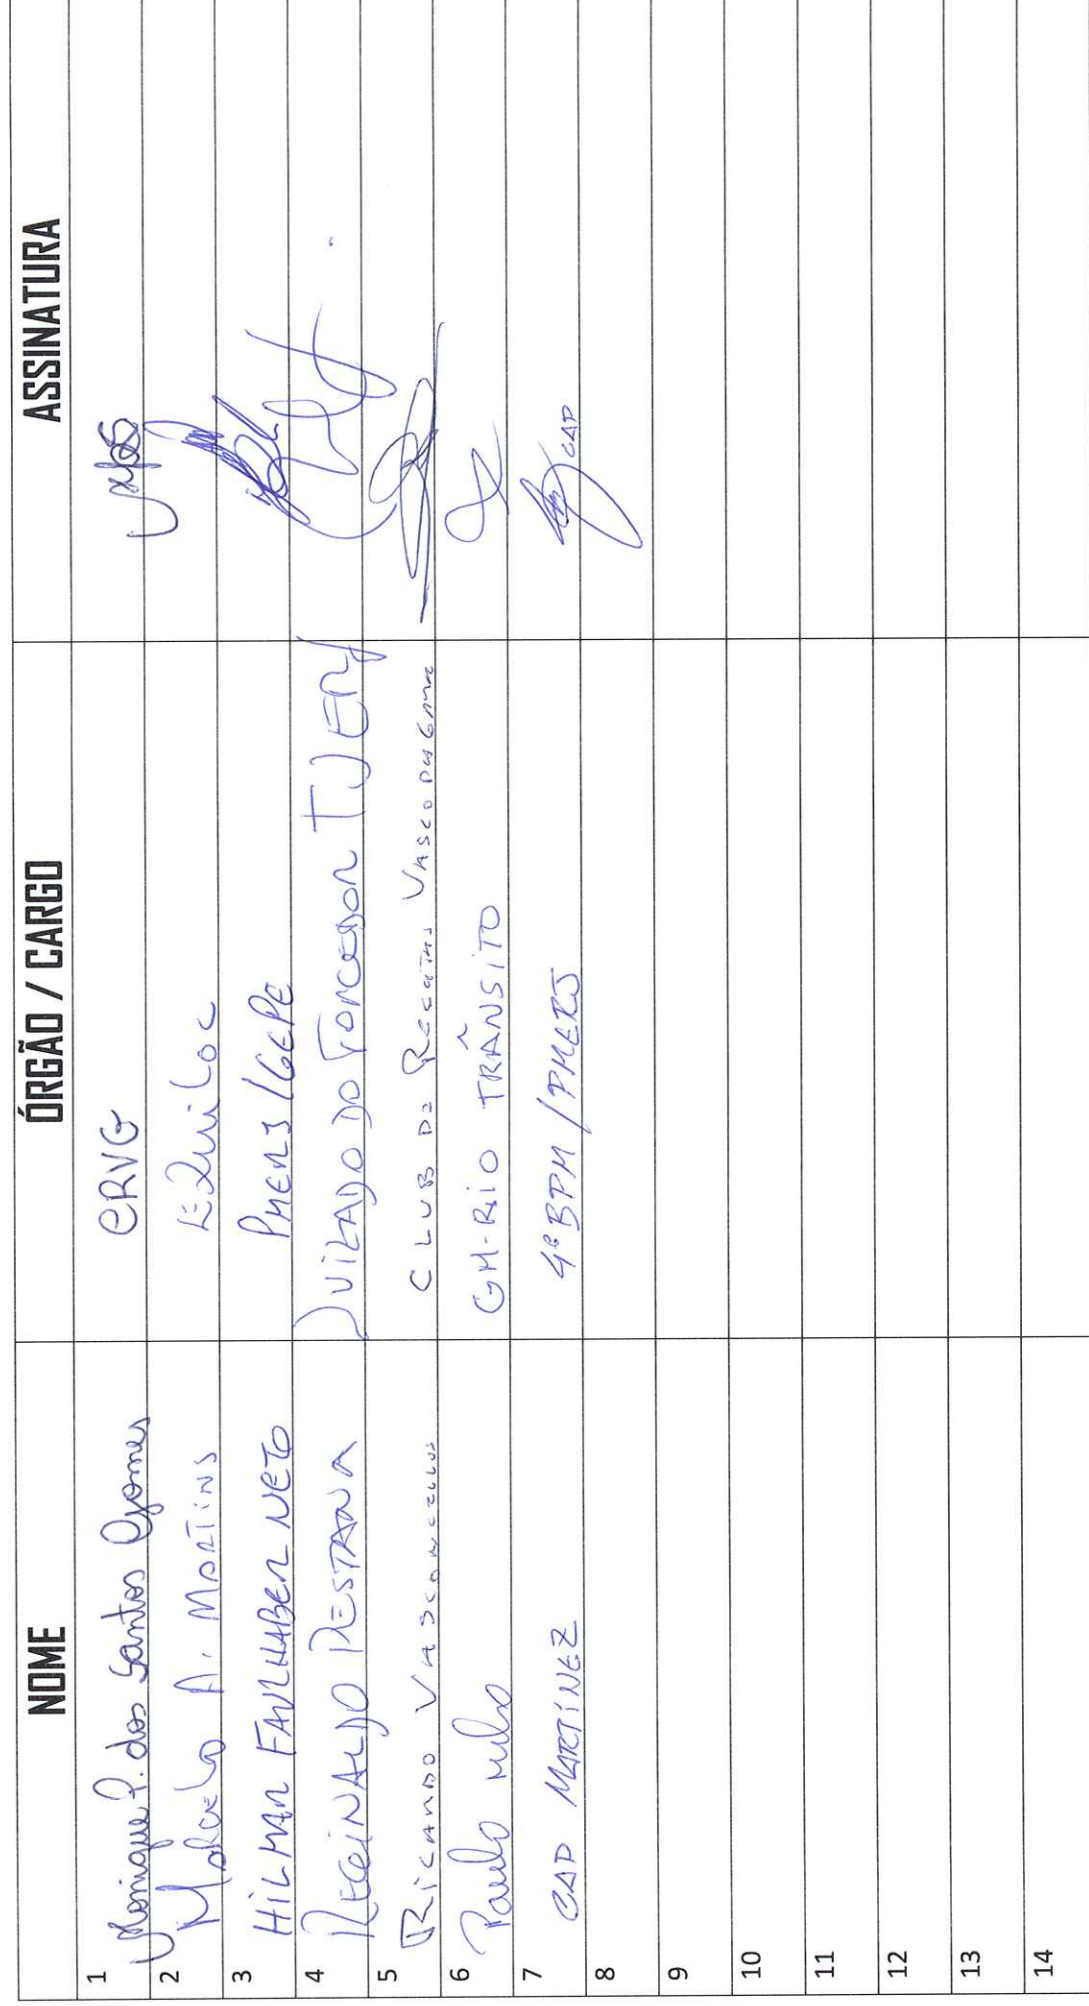 NOME ÓRGÃO / CARGO ASSINATURA
1 Monique P. dos Santos Gomes CRVG
2 Marcelo A. Martins EQuiLoc
3 HILMAR FAULHABER NETO PMERJ / GEPE
4 REGINALDO PESTANA JUIZADO DO TORCEDOR TJERJ
5 RICARDO VASCONCELLOS CLUB DE REGATAS VASCO DA GAMA
6 Paulo GM-RIO TRÂNSITO
7 CAP MARTINEZ 4º BPM / PMERJ CAP
8
9
10
11
12
13
14